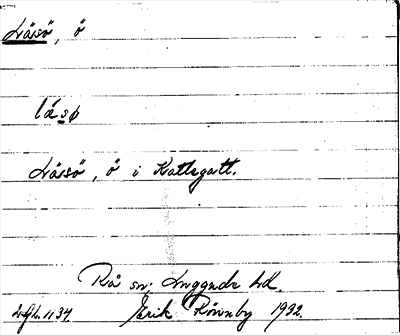 Läsö, ö
läsø
Läsö, ö i Kattegatt.
Rå sn; Luggude hd.
Erik Rönnby 1932.